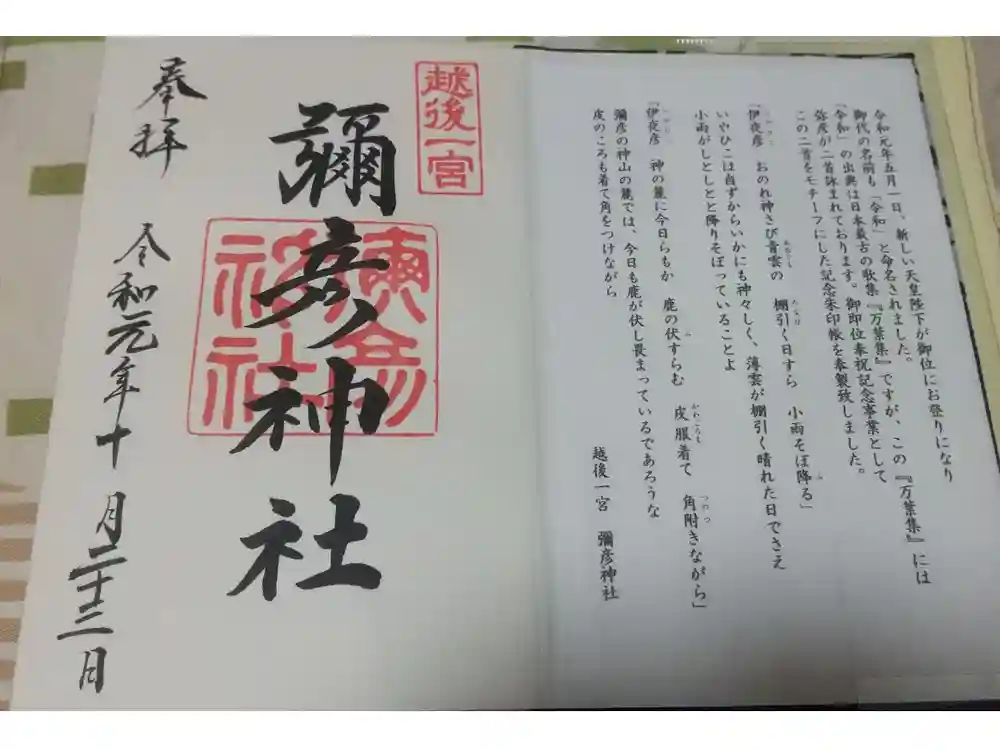 令和元年五月一日、新しい天皇陛下が御位にお登りになり
御代の名前も「令和」と命名されました。
「令和」の出典は日本最古の歌集『万葉集』ですが、この『万葉集』には
弥彦が二首詠まれております。御即位奉祝記念事業として
この二首をモチーフにした記念朱印帳を奉製致しました。
「伊夜彦 おのれ神さび青雲の 棚引く日すら 小雨そぼ降る」
いやひこは自ずからいかにも神々しく、薄雲が棚引く晴れた日でさえ
小雨がしとしとと降りそぼっていることよ
「伊夜彦 神の麓に今日らもか 鹿の伏すらむ 皮服着て 角附きながら」
彌彦の神山の麓では、今日も鹿が伏し畏まっているであろうな
皮のころも着て角をつけながら
越後一宮 彌彦神社
越後一宮
彌彦神社
奉拝
令和元年十月二十三日